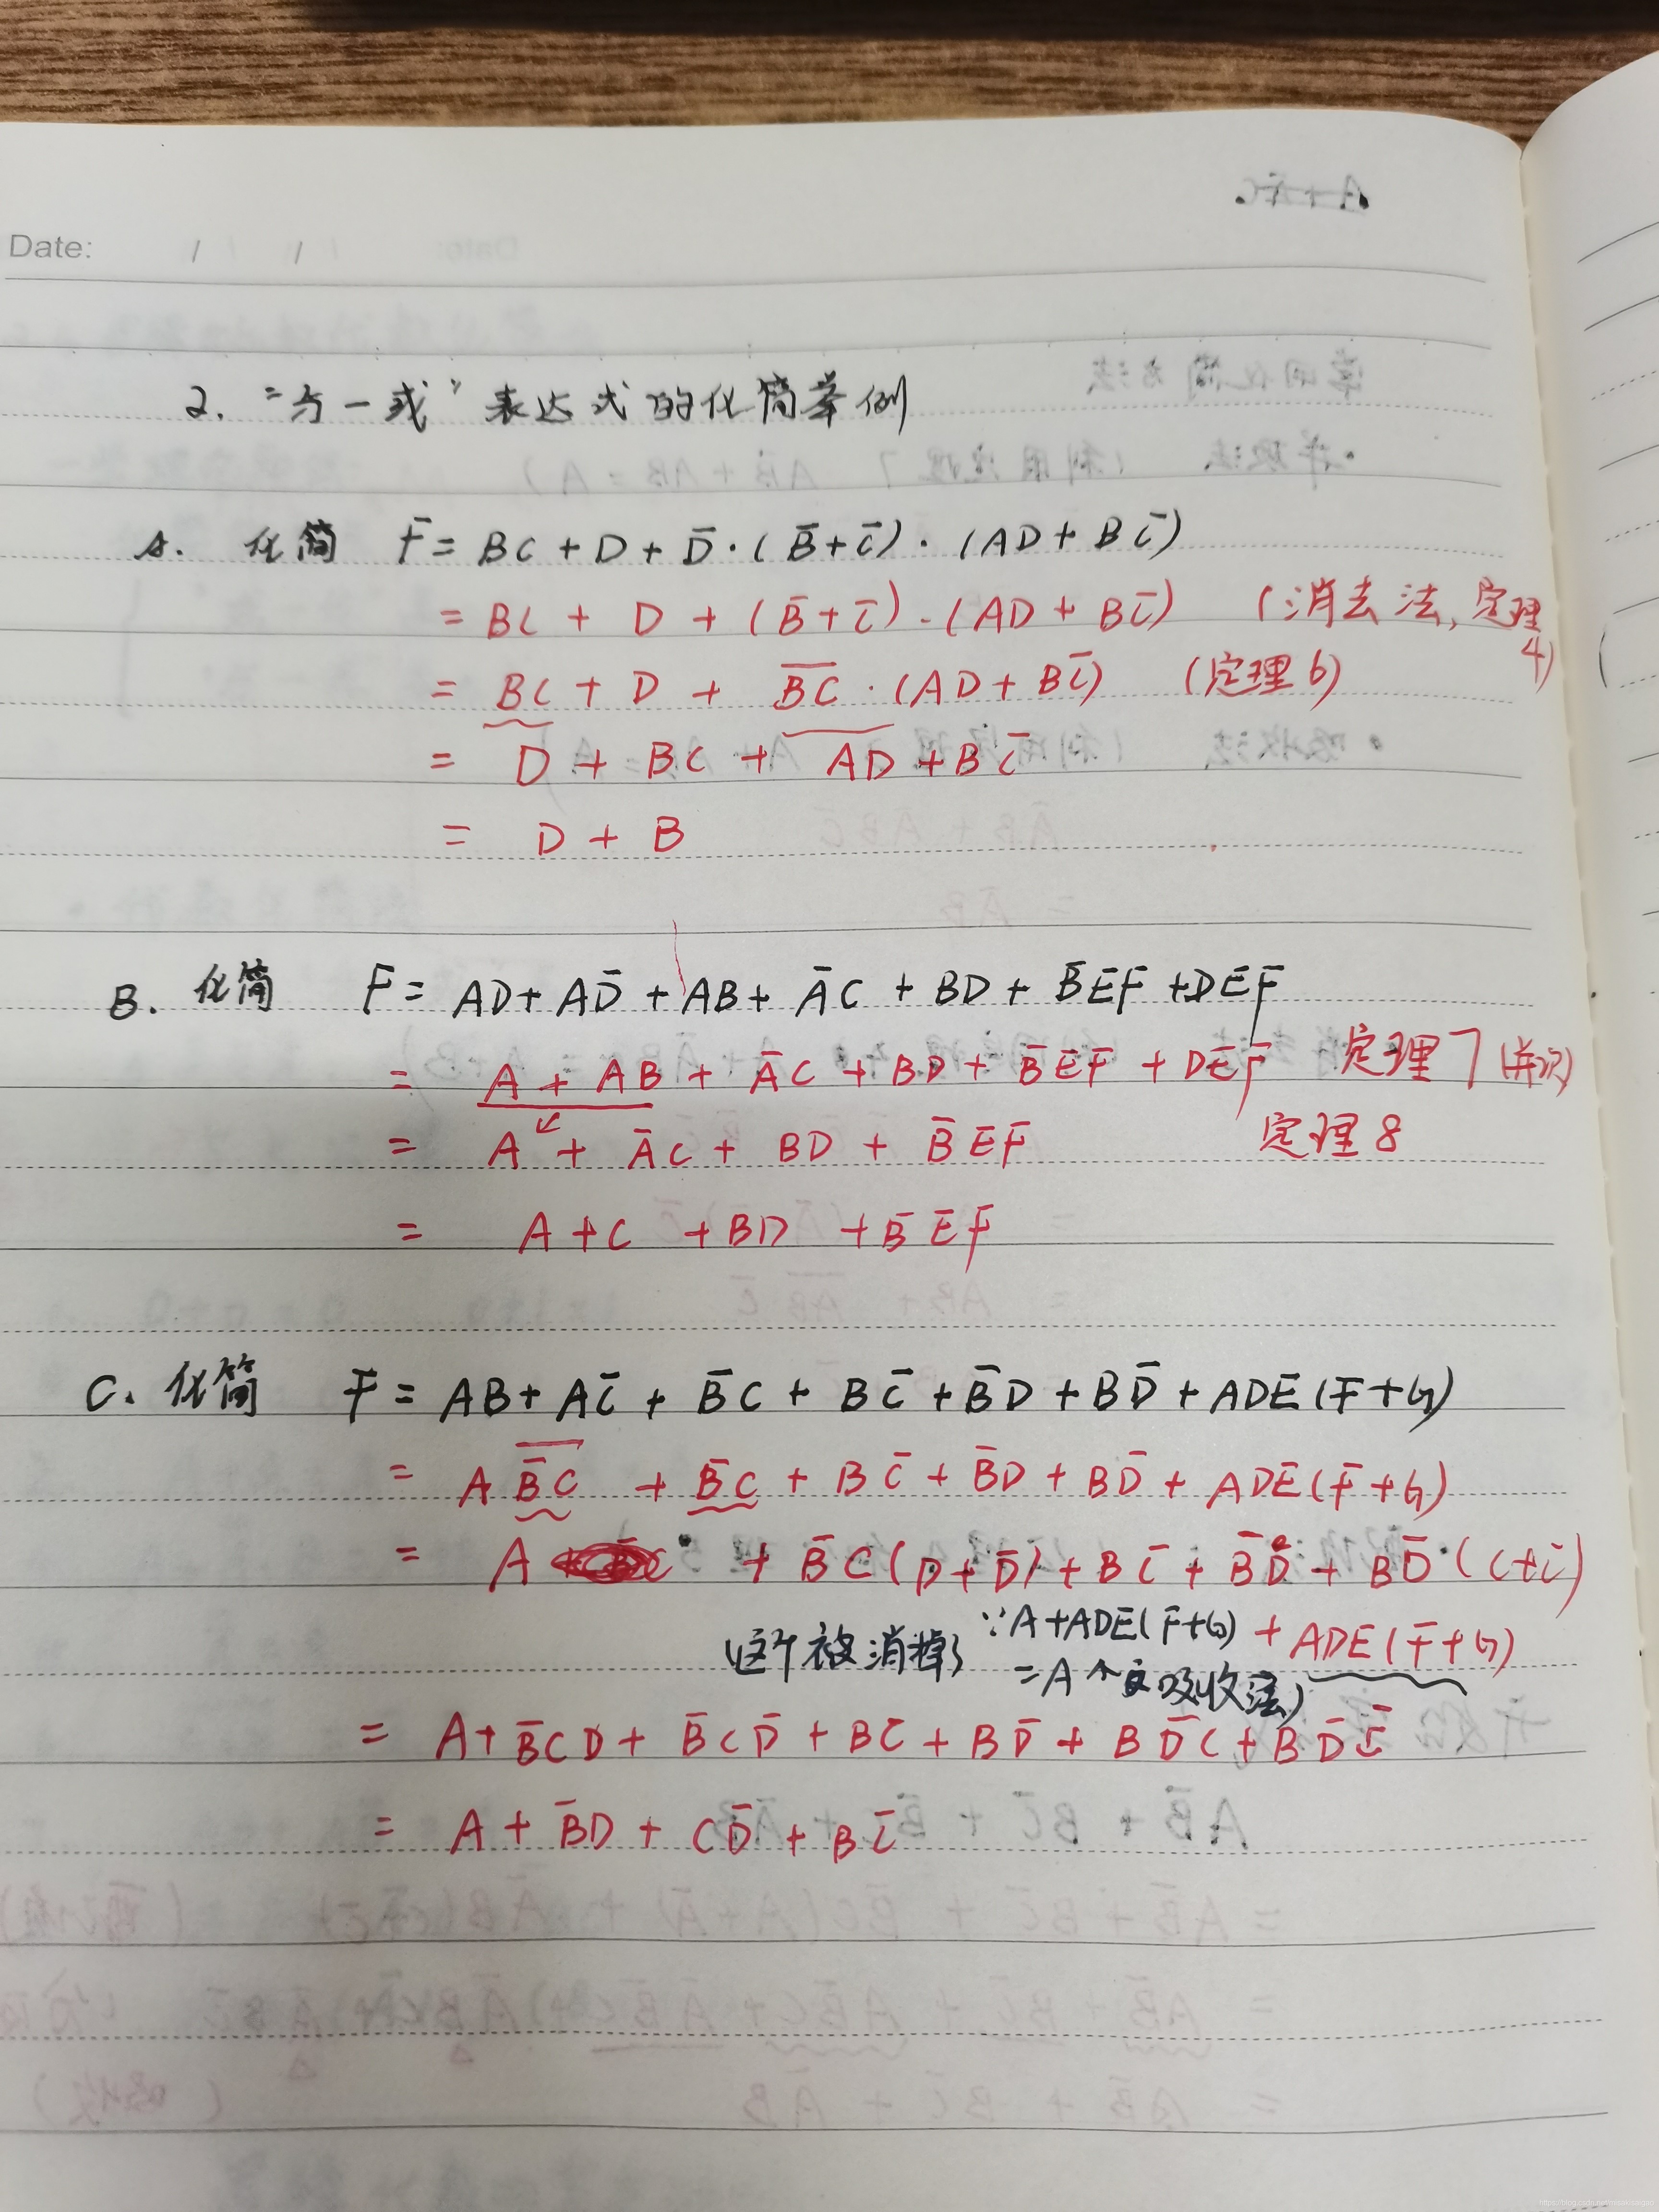 Date: / /
2. "与一或" 表达式的化简举例
A. 化简 F = BC + D + D̄·(B̄+C̄)·(AD + BC̄)
= BC + D + (B̄+C̄)·(AD + BC̄) (消去法, 定理4)
= BC + D + \overline{BC}·(AD + BC̄) (定理6)
= D + BC + AD + BC̄
= D + B
B. 化简 F = AD + AD̄ + AB + ĀC + BD + B̄EF + DEF
= A + AB + ĀC + BD + B̄EF + DEF 定理7(并项)
= A + ĀC + BD + B̄EF 定理8
= A + C + BD + B̄EF
C. 化简 F = AB + AC̄ + B̄C + BC̄ + B̄D + BD̄ + ADE(F+G)
= A\overline{B̄C} + B̄C + BC̄ + B̄D + BD̄ + ADE(F+G)
= A + B̄C(D+D̄) + BC̄ + B̄D + BD̄·(C+C̄)
(这个被消掉了 ∵A+ADE(F+G) + ADE(F+G)
=A 个文吸收法)
= A + B̄CD + B̄CD̄ + BC̄ + BD̄ + BD̄C + BD̄C̄
= A + B̄D + CD̄ + BC̄